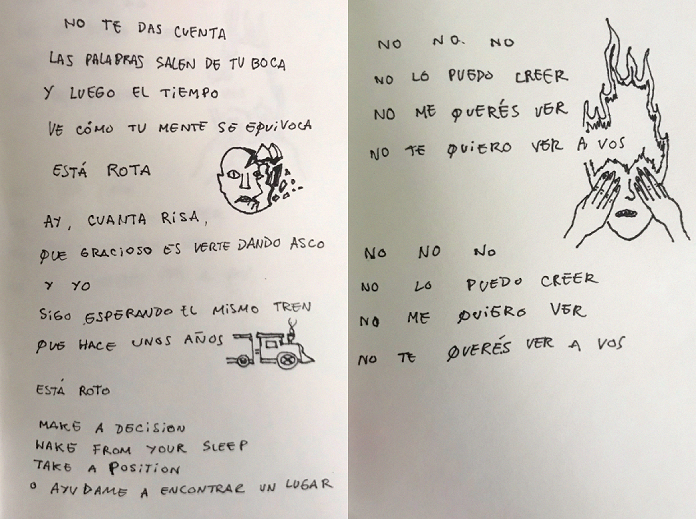 NO TE DAS CUENTA
LAS PALABRAS SALEN DE TU BOCA
Y LUEGO EL TIEMPO
VE CÓMO TU MENTE SE EQUIVOCA
ESTÁ ROTA
AY, CUANTA RISA,
QUE GRACIOSO ES VERTE DANDO ASCO
Y YO
SIGO ESPERANDO EL MISMO TREN
QUE HACE UNOS AÑOS
ESTÁ ROTO
MAKE A DECISION
WAKE FROM YOUR SLEEP
TAKE A POSITION
O AYUDAME A ENCONTRAR UN LUGAR
NO NO. NO
NO LO PUEDO CREER
NO ME QUERÉS VER
NO TE QUIERO VER A VOS
NO NO NO
NO LO PUEDO CREER
NO ME QUIERO VER
NO TE QUERÉS VER A VOS